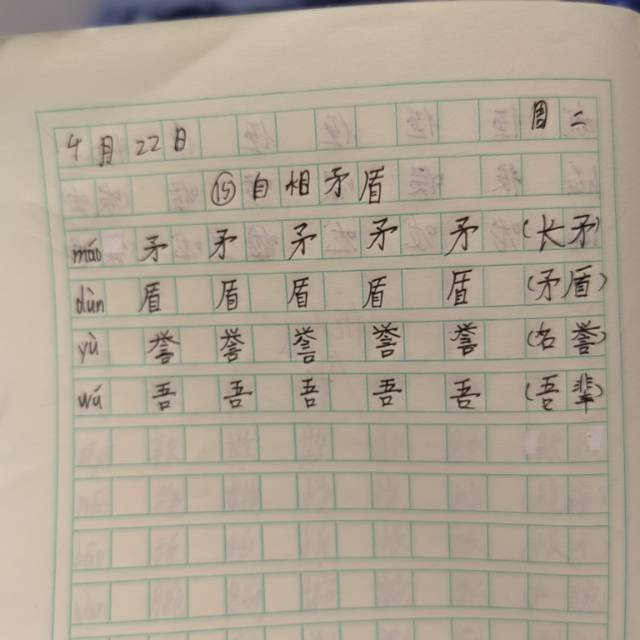 4月22日 周二
⑮自相矛盾
máo 矛 矛 矛 矛 矛 (长矛)
dùn 盾 盾 盾 盾 盾 (矛盾)
yù 誉 誉 誉 誉 誉 (名誉)
wú 吾 吾 吾 吾 吾 (吾辈)